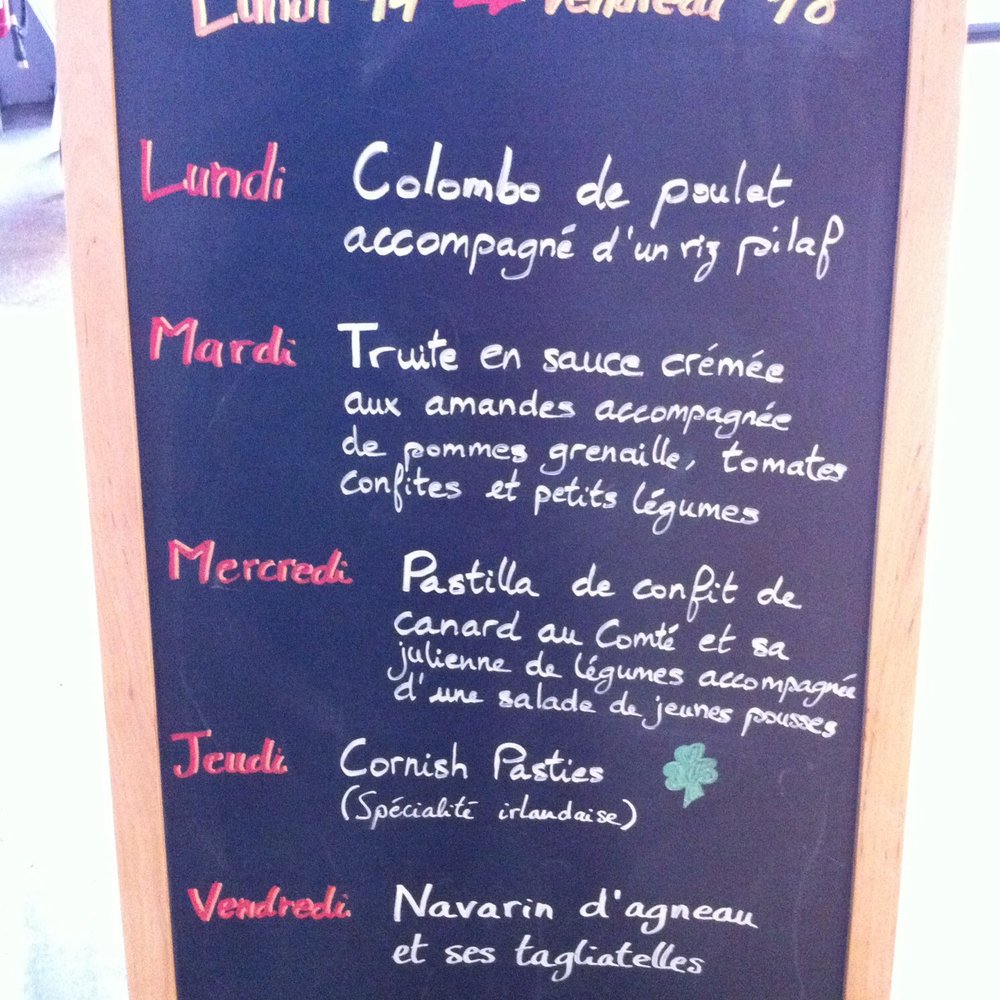 Lundi 14 → Vendredi 18
Lundi Colombo de poulet
accompagné d'un riz pilaf
Mardi Truite en sauce crémée
aux amandes accompagnée
de pommes grenaille, tomates
confites et petits légumes
Mercredi Pastilla de confit de
canard au Comté et sa
julienne de légumes accompagnée
d'une salade de jeunes pousses
Jeudi Cornish Pasties
(Spécialité irlandaise)
Vendredi Navarin d'agneau
et ses tagliatelles